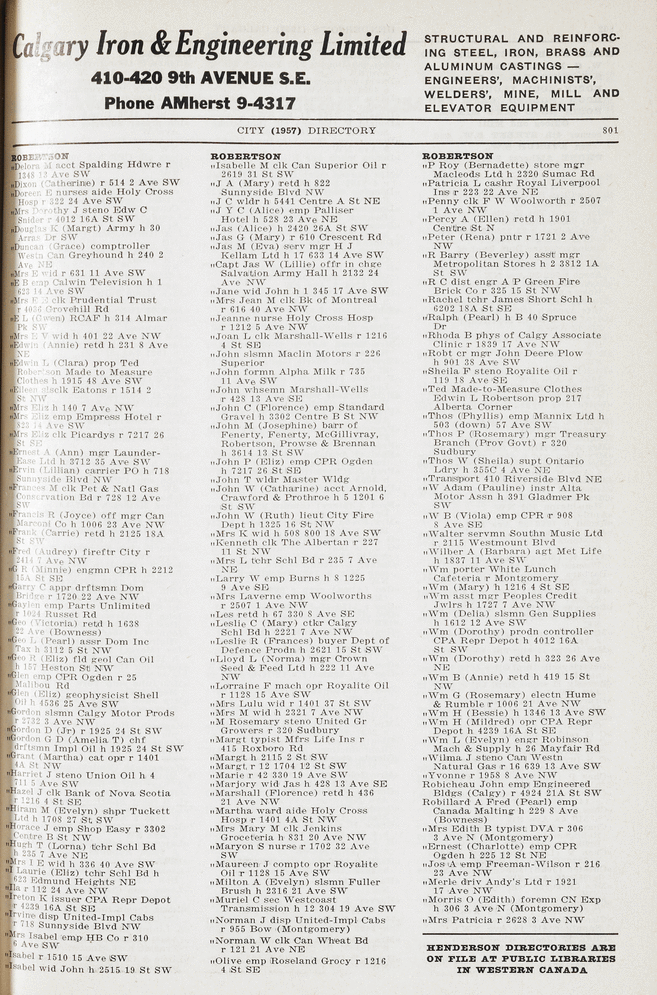 Calgary Iron & Engineering Limited
410-420 9th AVENUE S.E.
Phone AMherst 9-4317
STRUCTURAL AND REINFORC-
ING STEEL, IRON, BRASS AND
ALUMINUM CASTINGS —
ENGINEERS', MACHINISTS',
WELDERS', MINE, MILL AND
ELEVATOR EQUIPMENT
CITY (1957) DIRECTORY 801
ROBERTSON
„Delora M acct Spalding Hdwre r
1348 13 Ave SW
„Dixon (Catherine) r 514 2 Ave SW
„Doreen E nurses aide Holy Cross
Hosp r 322 24 Ave SW
„Mrs Dorothy J steno Edw C
Snider r 4012 16A St SW
„Douglas K (Margt) Army h 30
Arras Dr SW
„Duncan (Grace) comptroller
Westn Can Greyhound h 240 2
Ave NE
„Mrs E wid r 631 11 Ave SW
„E B emp Calwin Television h 1
623 14 Ave SW
„Mrs E E clk Prudential Trust
r 4036 Grovehill Rd
„E L (Gwen) RCAF h 314 Almar
Pk SW
„Mrs E wid h 401 22 Ave NW
„Edwin (Annie) retd h 231 8 Ave
NE
„Edwin L (Clara) prop Ted
Robertson Made to Measure
Clothes h 1915 48 Ave SW
„Eileen stsclk Eatons r 1514 2
St NW
„Mrs Eliz h 140 7 Ave NW
„Mrs Eliz emp Empress Hotel r
823 14 Ave SW
„Mrs Eliz clk Picardys r 7217 26
St SE
„Ernest A (Ann) mgr Launder-
Ease Ltd h 3712 35 Ave SW
„Ervin (Lillian) carrier PO h 718
Sunnyside Blvd NW
„Frances M clk Pet & Natl Gas
Conservation Bd r 728 12 Ave
SW
„Francis R (Joyce) off mgr Can
Marconi Co h 1006 23 Ave NW
„Frank (Carrie) retd h 2125 18A
St SW
„Fred (Audrey) fireftr City r
2414 7 Ave NW
„G R (Minnie) engmn CPR h 2212
15A St SE
„Garry C appr drftsmn Dom
Bridge r 1720 22 Ave NW
„Gaylen emp Parts Unlimited
r 1024 Russet Rd
„Geo (Victoria) retd h 1638
22 Ave (Bowness)
„Geo L (Pearl) assr Dom Inc
Tax h 3112 5 St NW
„Geo R (Eliz) fld geol Can Oil
h 157 Heston St NW
„Glen emp CPR Ogden r 25
Malibou Rd
„Glen (Eliz) geophysicist Shell
Oil h 4536 25 Ave SW
„Gordon slsmn Calgy Motor Prods
r 2732 3 Ave NW
„Gordon D (Jr) r 1925 24 St SW
„Gordon G D (Amelia T) chf
drftsmn Impl Oil h 1925 24 St SW
„Grant (Martha) cat opr r 1401
4A St NW
„Harriet J steno Union Oil h 4
711 5 Ave SW
„Hazel J clk Bank of Nova Scotia
r 1216 4 St SE
„Hiram M (Evelyn) shpr Tuckett
Ltd h 1708 27 St SW
„Horace J emp Shop Easy r 3302
Centre B St NW
„Hugh T (Lorna) tchr Schl Bd
h 235 7 Ave NE
„Mrs I E wid h 336 40 Ave SW
„I Laurie (Eliz) tchr Schl Bd h
623 Edmund Heights NE
„Ila r 112 24 Ave NW
„Ireton K issuer CPA Repr Depot
r 4239 16A St SE
„Irvine disp United-Impl Cabs
r 718 Sunnyside Blvd NW
„Mrs Isabel emp HB Co r 310
6 Ave SW
„Isabel r 1510 15 Ave SW
„Isabel wid John h 2515 19 St SW
ROBERTSON
„Isabelle M clk Can Superior Oil r
2619 31 St SW
„J A (Mary) retd h 822
Sunnyside Blvd NW
„J C wldr h 5441 Centre A St NE
„J Y C (Alice) emp Palliser
Hotel h 528 23 Ave NE
„Jas (Alice) h 2420 26A St SW
„Jas G (Mary) r 610 Crescent Rd
„Jas M (Eva) serv mgr H J
Kellam Ltd h 17 633 14 Ave SW
„Capt Jas W (Lillie) offr in chge
Salvation Army Hall h 2132 24
Ave NW
„Jane wid John h 1 345 17 Ave SW
„Mrs Jean M clk Bk of Montreal
r 616 40 Ave NW
„Jeanne nurse Holy Cross Hosp
r 1212 5 Ave NW
„Joan L clk Marshall-Wells r 1216
4 St SE
„John slsmn Maclin Motors r 226
Superior
„John formn Alpha Milk r 735
11 Ave SW
„John whsemn Marshall-Wells
r 428 13 Ave SE
„John C (Florence) emp Standard
Gravel h 3302 Centre B St NW
„John M (Josephine) barr of
Fenerty, Fenerty, McGillivray,
Robertson, Prowse & Brennan
h 3614 13 St SW
„John P (Eliz) emp CPR Ogden
h 7217 26 St SE
„John T wldr Master Wldg
„John W (Catharine) acct Arnold,
Crawford & Prothroe h 5 1201 6
St SW
„John W (Ruth) lieut City Fire
Dept h 1325 16 St NW
„Mrs K wid h 508 800 18 Ave SW
„Kenneth clk The Albertan r 227
11 St NW
„Mrs L tchr Schl Bd r 235 7 Ave
NE
„Larry W emp Burns h 8 1225
9 Ave SE
„Mrs Laverne emp Woolworths
r 2507 1 Ave NW
„Les retd h 67 330 8 Ave SE
„Leslie C (Mary) ctkr Calgy
Schl Bd h 2221 7 Ave NW
„Leslie R (Frances) buyer Dept of
Defence Prodn h 2621 15 St SW
„Lloyd L (Norma) mgr Crown
Seed & Feed Ltd h 222 11 Ave
NW
„Lorraine F mach opr Royalite Oil
r 1128 15 Ave SW
„Mrs Lulu wid r 1401 37 St SW
„Mrs M wid h 2321 7 Ave NW
„M Rosemary steno United Gr
Growers r 320 Sudbury
„Margt typist Mfrs Life Ins r
415 Roxboro Rd
„Margt h 2115 2 St SW
„Margt r 12 1704 12 St SW
„Marie r 42 330 19 Ave SW
„Marjory wid Jas h 428 13 Ave SE
„Marshall (Florence) retd h 436
21 Ave NW
„Martha ward aide Holy Cross
Hosp r 1401 4A St NW
„Mrs Mary M clk Jenkins
Groceteria h 831 20 Ave NW
„Maryon S nurse r 1702 32 Ave
SW
„Maureen J compto opr Royalite
Oil r 1128 15 Ave SW
„Milton A (Evelyn) slsmn Fuller
Brush h 2316 21 Ave SW
„Muriel C sec Westcoast
Transmission h 12 304 19 Ave SW
„Norman J disp United-Impl Cabs
r 955 Bow (Montgomery)
„Norman W clk Can Wheat Bd
r 121 21 Ave NE
„Olive emp Roseland Grocy r 1216
4 St SE
ROBERTSON
„P Roy (Bernadette) store mgr
Macleods Ltd h 2320 Sumac Rd
„Patricia L cashr Royal Liverpool
Ins r 223 22 Ave NE
„Penny clk F W Woolworth r 2507
1 Ave NW
„Percy A (Ellen) retd h 1901
Centre St N
„Peter (Rena) pntr r 1721 2 Ave
NW
„R Barry (Beverley) asst mgr
Metropolitan Stores h 2 3812 1A
St SW
„R C dist engr A P Green Fire
Brick Co r 325 15 St NW
„Rachel tchr James Short Schl h
6202 18A St SE
„Ralph (Pearl) h B 40 Spruce
Dr
„Rhoda B phys of Calgy Associate
Clinic r 1839 17 Ave NW
„Robt cr mgr John Deere Plow
h 901 38 Ave SW
„Sheila F steno Royalite Oil r
119 18 Ave SE
„Ted Made-to-Measure Clothes
Edwin L Robertson prop 217
Alberta Corner
„Thos (Phyllis) emp Mannix Ltd h
503 (down) 57 Ave SW
„Thos P (Rosemary) mgr Treasury
Branch (Prov Govt) r 320
Sudbury
„Thos W (Sheila) supt Ontario
Ldry h 355C 4 Ave NE
„Transport 410 Riverside Blvd NE
„W Adam (Pauline) instr Alta
Motor Assn h 391 Gladmer Pk
SW
„W B (Viola) emp CPR r 908
8 Ave SE
„Walter servmn Southn Music Ltd
r 2115 Westmount Blvd
„Wilber A (Barbara) agt Met Life
h 1837 11 Ave SW
„Wm porter White Lunch
Cafeteria r Montgomery
„Wm (Mary) h 1216 4 St SE
„Wm asst mgr Peoples Credit
Jwlrs h 1727 7 Ave NW
„Wm (Delia) slsmn Gen Supplies
h 1612 12 Ave SW
„Wm (Dorothy) prodn controller
CPA Repr Depot h 4012 16A
St SW
„Wm (Dorothy) retd h 323 26 Ave
NE
„Wm B (Annie) retd h 419 15 St
NW
„Wm G (Rosemary) electn Hume
& Rumble r 1006 21 Ave NW
„Wm H (Bessie) h 1346 13 Ave SW
„Wm H (Mildred) opr CPA Repr
Depot h 4239 16A St SE
„Wm L (Evelyn) engr Robinson
Mach & Supply h 26 Mayfair Rd
„Wilma J steno Can Westn
Natural Gas r 16 639 13 Ave SW
„Yvonne r 1958 8 Ave NW
Robicheau John emp Engineered
Bldgs (Calgy) r 4924 21A St SW
Robillard A Fred (Pearl) emp
Canada Malting h 229 8 Ave
(Bowness)
„Mrs Edith B typist DVA r 306
3 Ave N (Montgomery)
„Ernest (Charlotte) emp CPR
Ogden h 225 12 St NE
„Jos A emp Freeman-Wilson r 216
23 Ave NW
„Merle driv Andy's Ltd r 1921
17 Ave NW
„Morris O (Edith) foremn CN Exp
h 306 3 Ave N (Montgomery)
„Mrs Patricia r 2628 3 Ave NW
HENDERSON DIRECTORIES ARE
ON FILE AT PUBLIC LIBRARIES
IN WESTERN CANADA